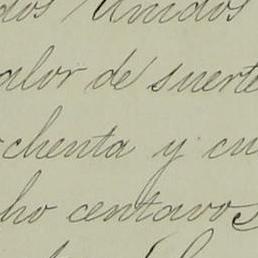 dos Unidos
alor de suerte
ochenta y cu
cho centavos